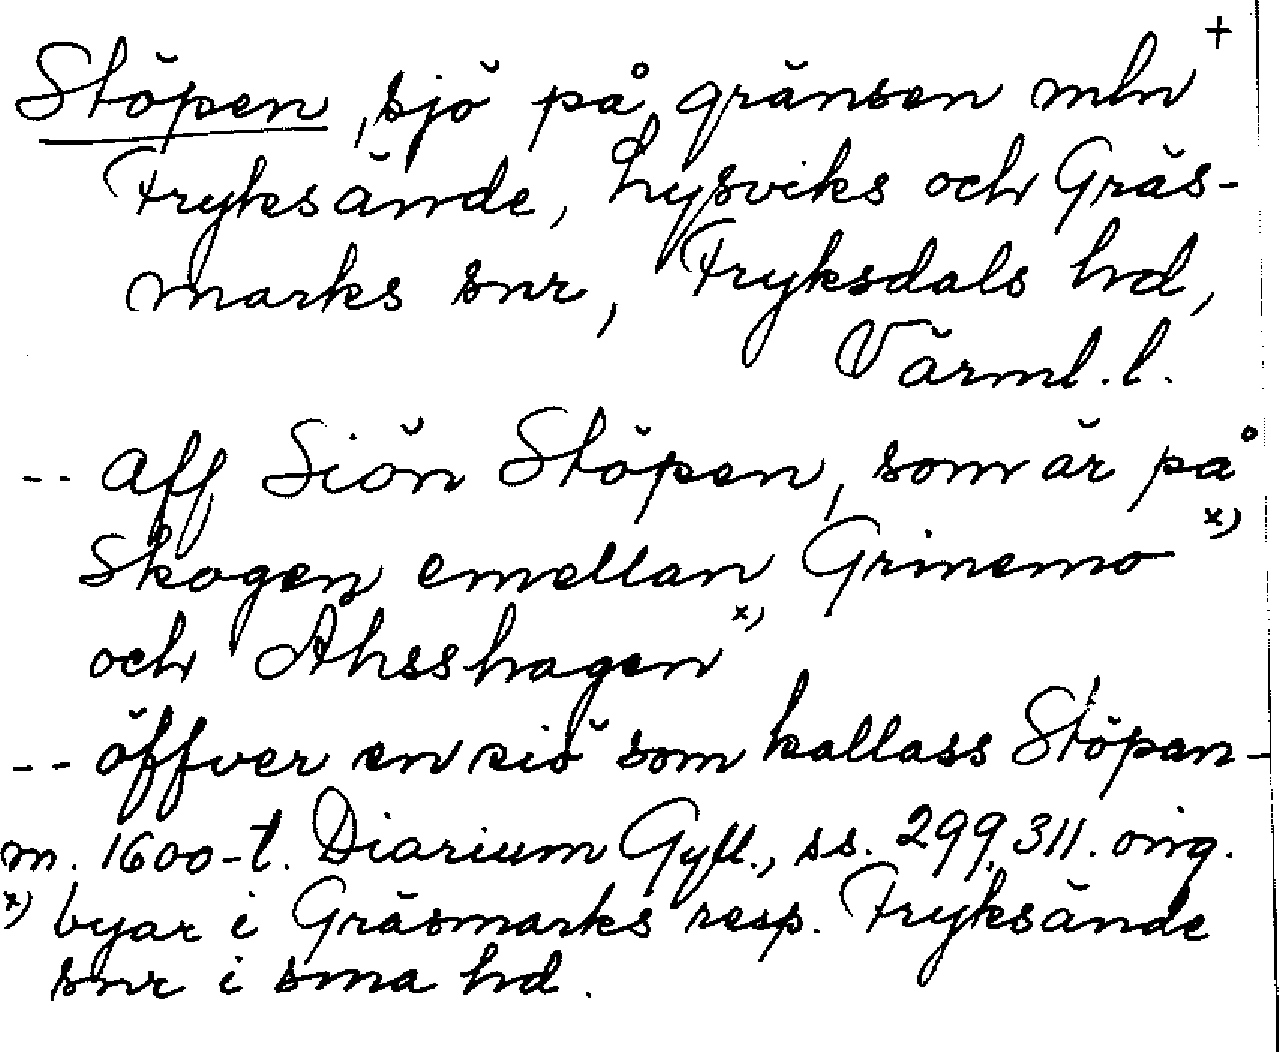 +
Stöpen, sjö på gränsen mln
Fryksände, Lysviks och Gräs-
marks snr, Fryksdals hd,
Värml. l.
-- aff Siön Stöpen, som är på
Skogen emellan Grinemo x)
och Ahsshagen x)
-- öffver en siö som kallass Stöpen -
m. 1600-t. Diarium Gyll., ss. 299, 311. orig.
x) byar i Gräsmarks resp. Fryksände
snr i sma hd.